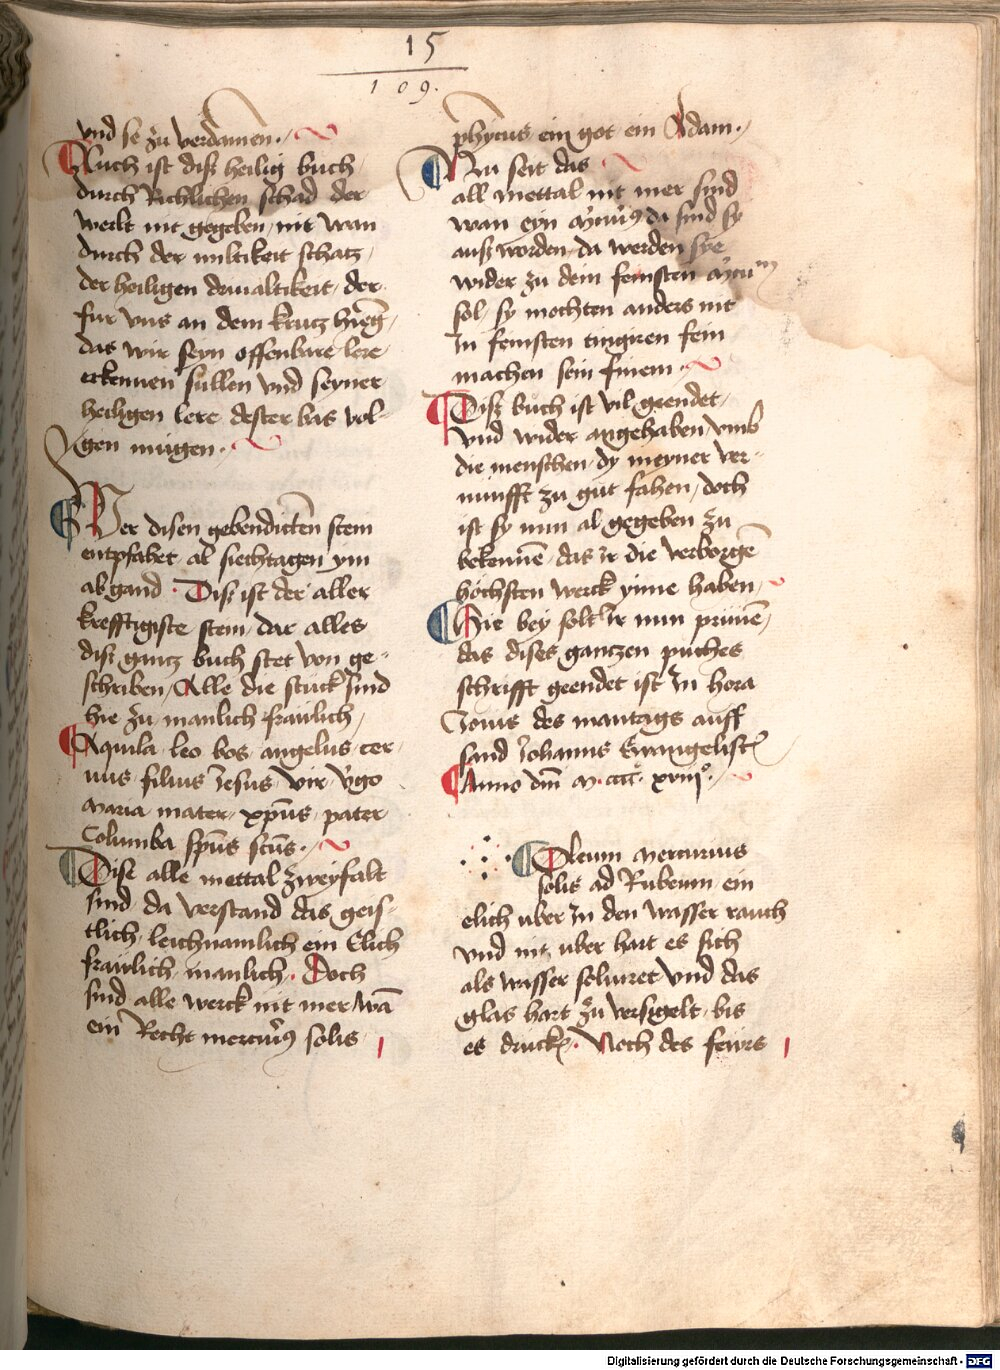 15
109.
vnd se zu verdamen.
Auch ist disz heilig buch
durch Richlichen schad der
werlt nit gegeben, nit wan
durch der miltikeit schatz,
der heiligen demaltikeit, der
fur vns an dem krutz hieng,
das wir seyn offenbare lere
erkennen sullen vnd seyner
heiligen lere dester bas vol-
gen mugen.
Wer disen gebendicten stein
entpfahet al siechtagen ym
ab gand. Disz ist der aller
krefftigiste stein, dar alles
disz gantz buch stet von ge-
schriben, Alle die stuck sind
hie zu manlich frawlich,
Aquila leo bos angelus cer
uus filius Jesus vir vgo
Maria mater xpus pater
Columba spus scus.
Dise alle mettal zweyfalt
sind da verstand das geis-
tlich, leichnamlich ein Elich
frawlich manlich. Doch
sind alle werck nit mer wan
ein Recht mercurius solis
phycus ein got ein Adam.
Nu seit das
all mettal nit mer sind
wan eyn da sind sy
ausz worden, da werden sye
wider zu dem feinsten
sol, sy mochten anders nit
In feinsten tingiren fein
machen sein finem.
Disz buch ist vil geendet,
vnd wider angehaben vmb
die menschen, dy meyner ver-
nunfft zu gut fahen, doch
ist sy nun al gegeben zu
bekennen das ir die verborgen
hochsten werck ynne haben,
Hie bey solt Ir nun pruuen,
das dises gantzen puches
schrifft geendet ist In hora
Jouis des mantags auff
sand Johanns Ewangelist
Anno dm M. cccc xviij.
Oleum Mercurius
solis ad Rubeum ein
elich uber In den wasser rauch
vnd nit uber hart es sich
als wasser soluiret vnd das
glas hart zu versigelt, bis
es druck. Noch des fewrs
Digitalisierung gefördert durch die Deutsche Forschungsgemeinschaft - DFG